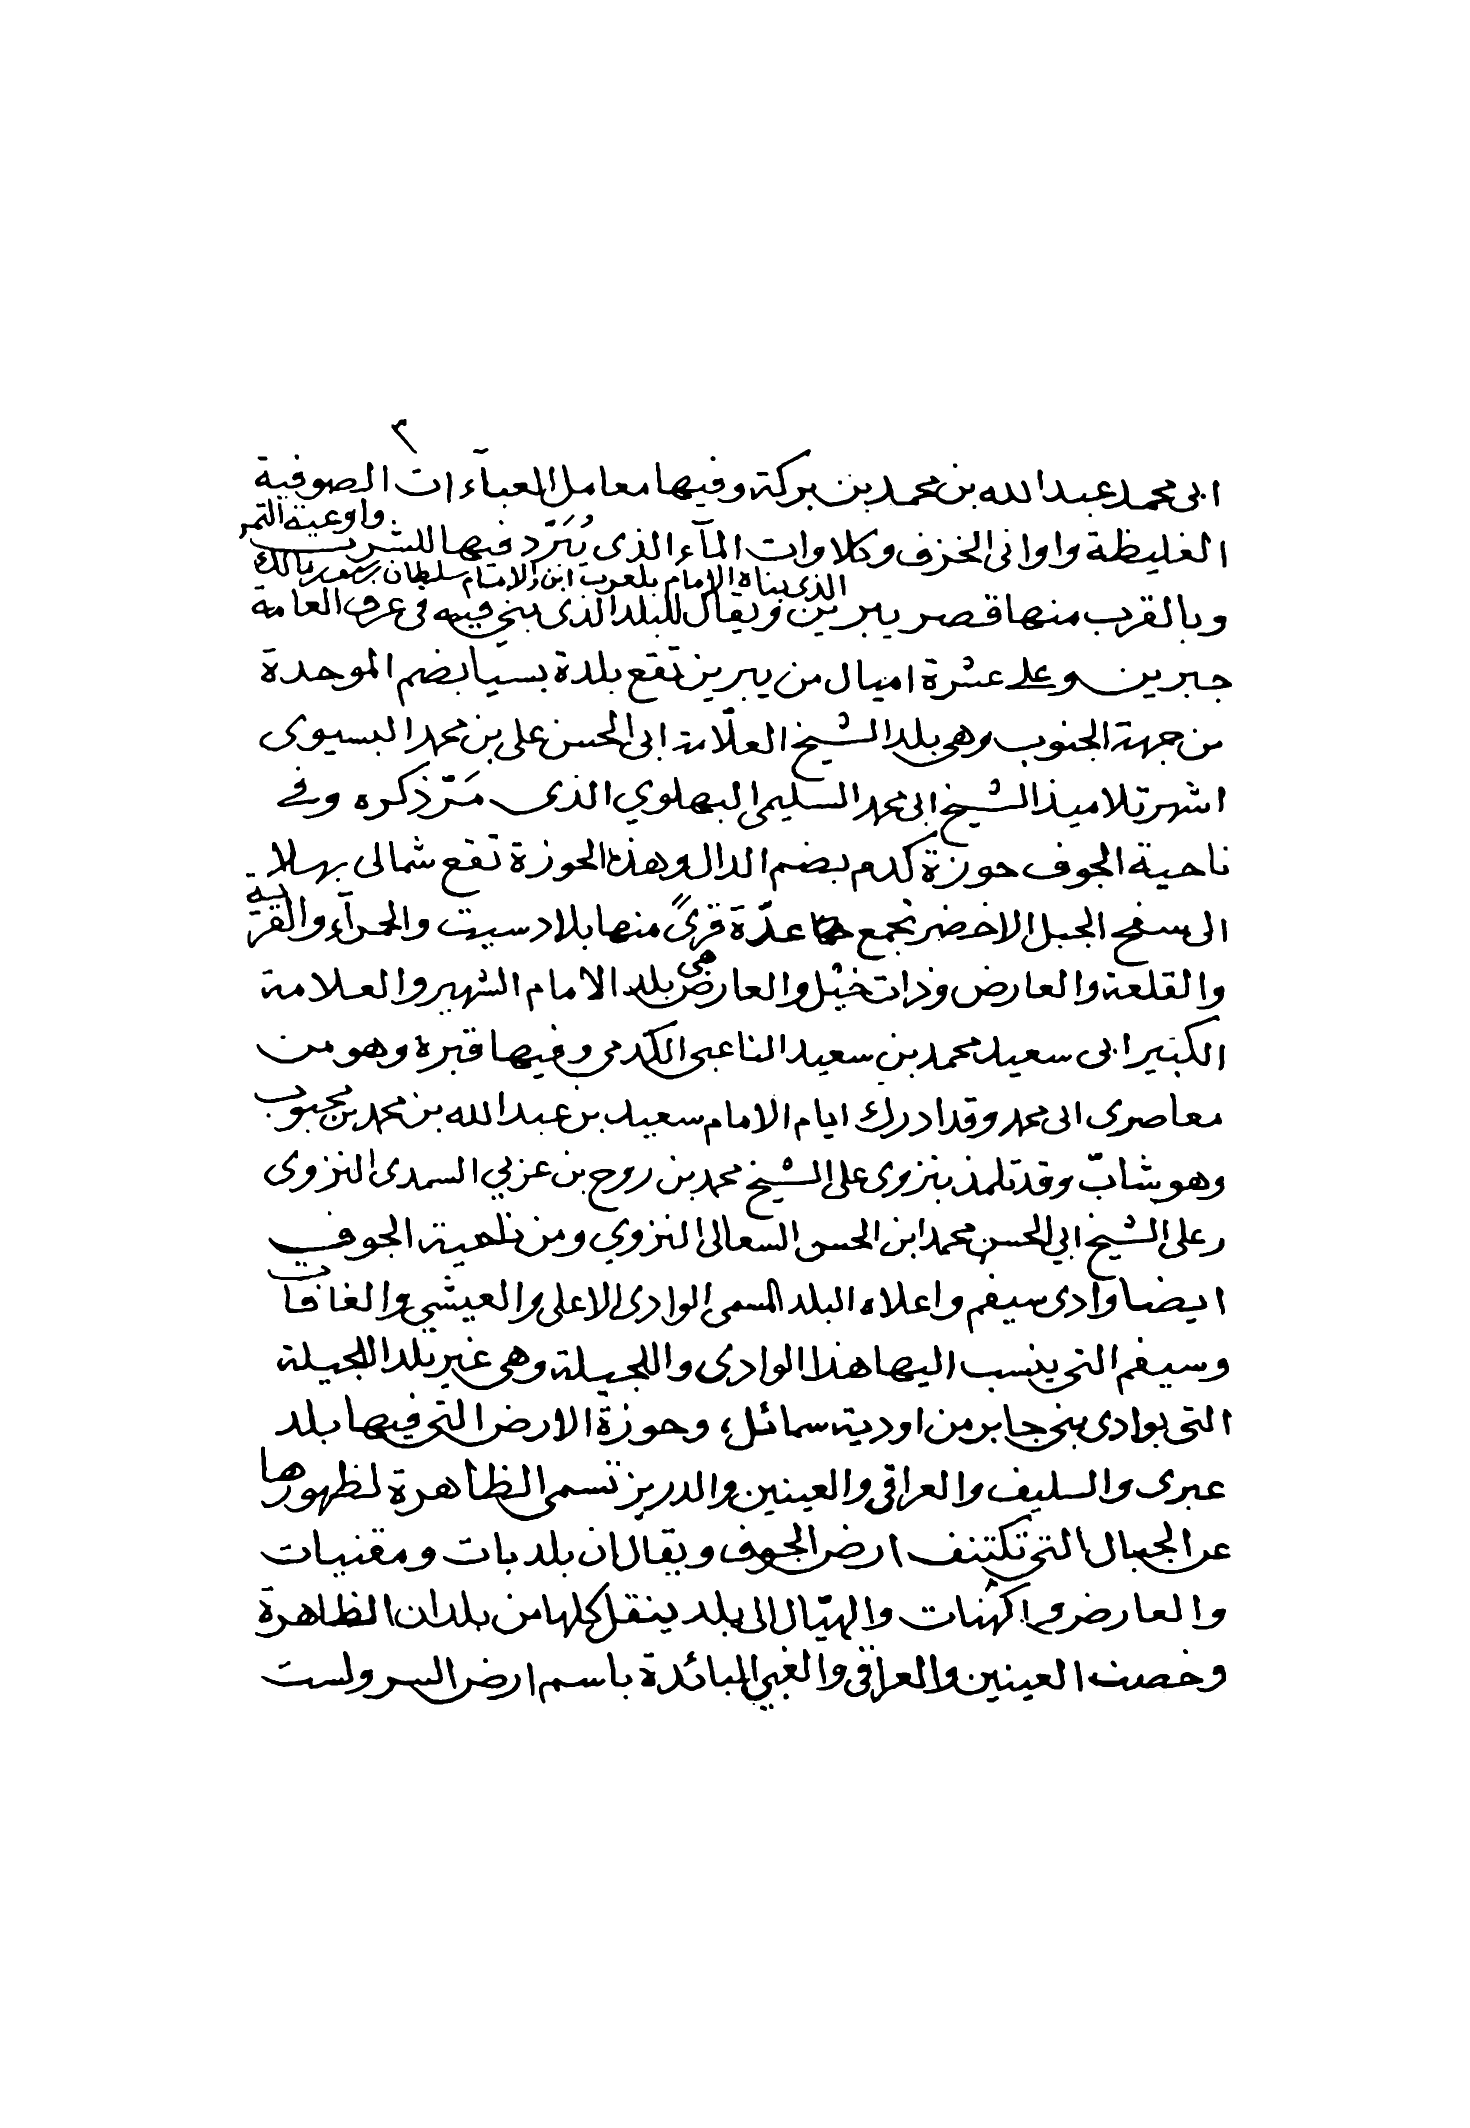 ٣
ابى محمد عبد الله بن محمد بن بركة وفيها معامل العبآءات الصوفية
واوعية التمر
الغليظة واوانى الخزف وكلاوات المآء الذى يُبَرَّد فيها للشرب
الذى بناه الامام بلعرب ابن الامام سلطان بن سيف بن مالك
وبالقرب منها قصر يبرين ويقال للبلد الذى بني فيه فى عرف العامة
جبرين وعلى عشرة اميال من يبرين تقع بلدة بسيا بضم الموحدة
من جهة الجنوب وهى بلد الشيخ العلّامة ابى الحسن على بن محمد البسيوى
اشهر تلاميذ الشيخ ابى محمد السليمى البهلوي الذى مَرّ ذكره وفي
ناحية الجوف حوزة كدم بضم الدال وهذه الحوزة تقع شمالى بهلا
الى سفح الجبل الاخضر تجمع عدّة قرىً منها بلاد سيت والحمرآء والقرية
والقلعة والعارض وذات خيل والعارض هى بلد الامام الشهير والعلامة
الكبير ابى سعيد محمد بن سعيد الناعبى الكدمى وفيها قبره وهو من
معاصرى ابى محمد وقد ادرك ايام الامام سعيد بن عبد الله بن محمد بن محبوب
وهو شابّ وقد تلمذ بنزوى على الشيخ محمد بن روح بن عربي السمدى النزوى
وعلى الشيخ ابي الحسن محمد ابن الحسن السعالى النزوي ومن ناحية الجوف
ايضا وادى سيفم واعلاه البلد المسمى الوادى الاعلى والعيشي والغافات
وسيفم التى ينسب اليها هذا الوادى واللجيلة وهى غير بلد اللجيلة
التى بوادى بنى جابر من اودية سمائل، وحوزة الارض التى فيها بلد
عبرى والسليف والعراقى والعينين والدريز تسمى الظاهرة لظهورها
عن الجبال التى تكتنف ارض الجوف ويقال ان بلد بات ومقنيات
والعارض والهيّال الى بلد ينقل كلها من بلدان الظاهرة
وخصت العينين والعراقى والغبي البائدة باسم ارض السر ولست